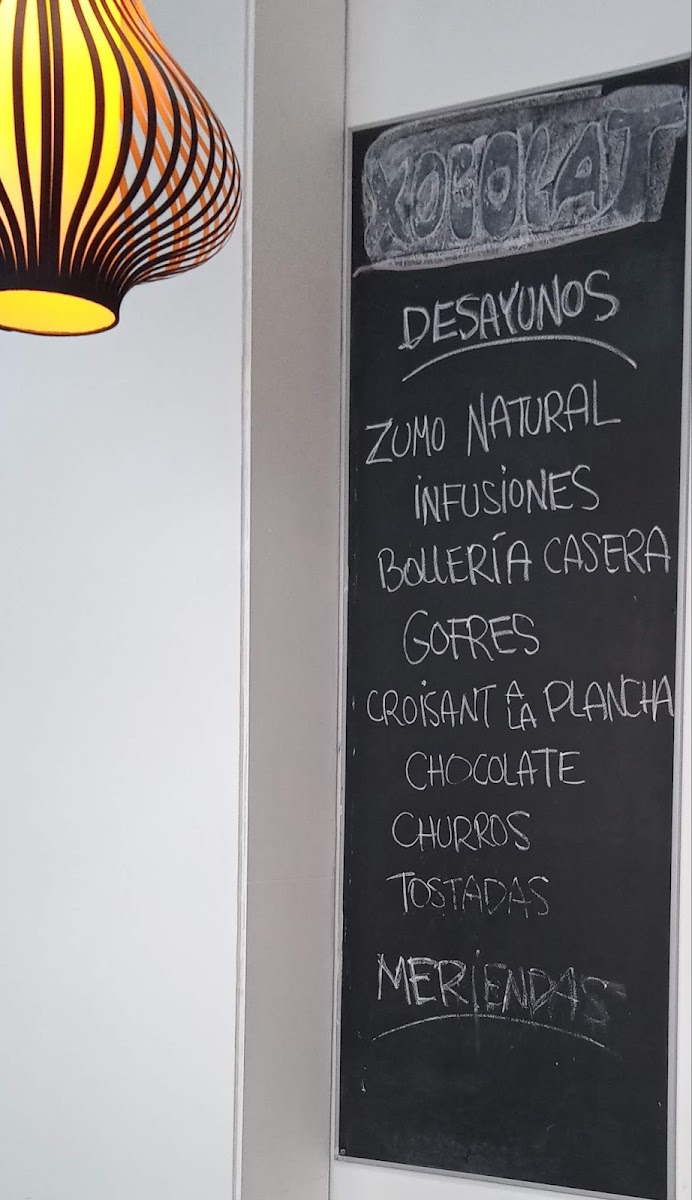 XOCOLAT
DESAYUNOS
ZUMO NATURAL
INFUSIONES
BOLLERÍA CASERA
GOFRES
CROISANT A LA PLANCHA
CHOCOLATE
CHURROS
TOSTADAS
MERIENDAS